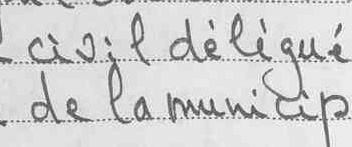 civil délégué
de la municip